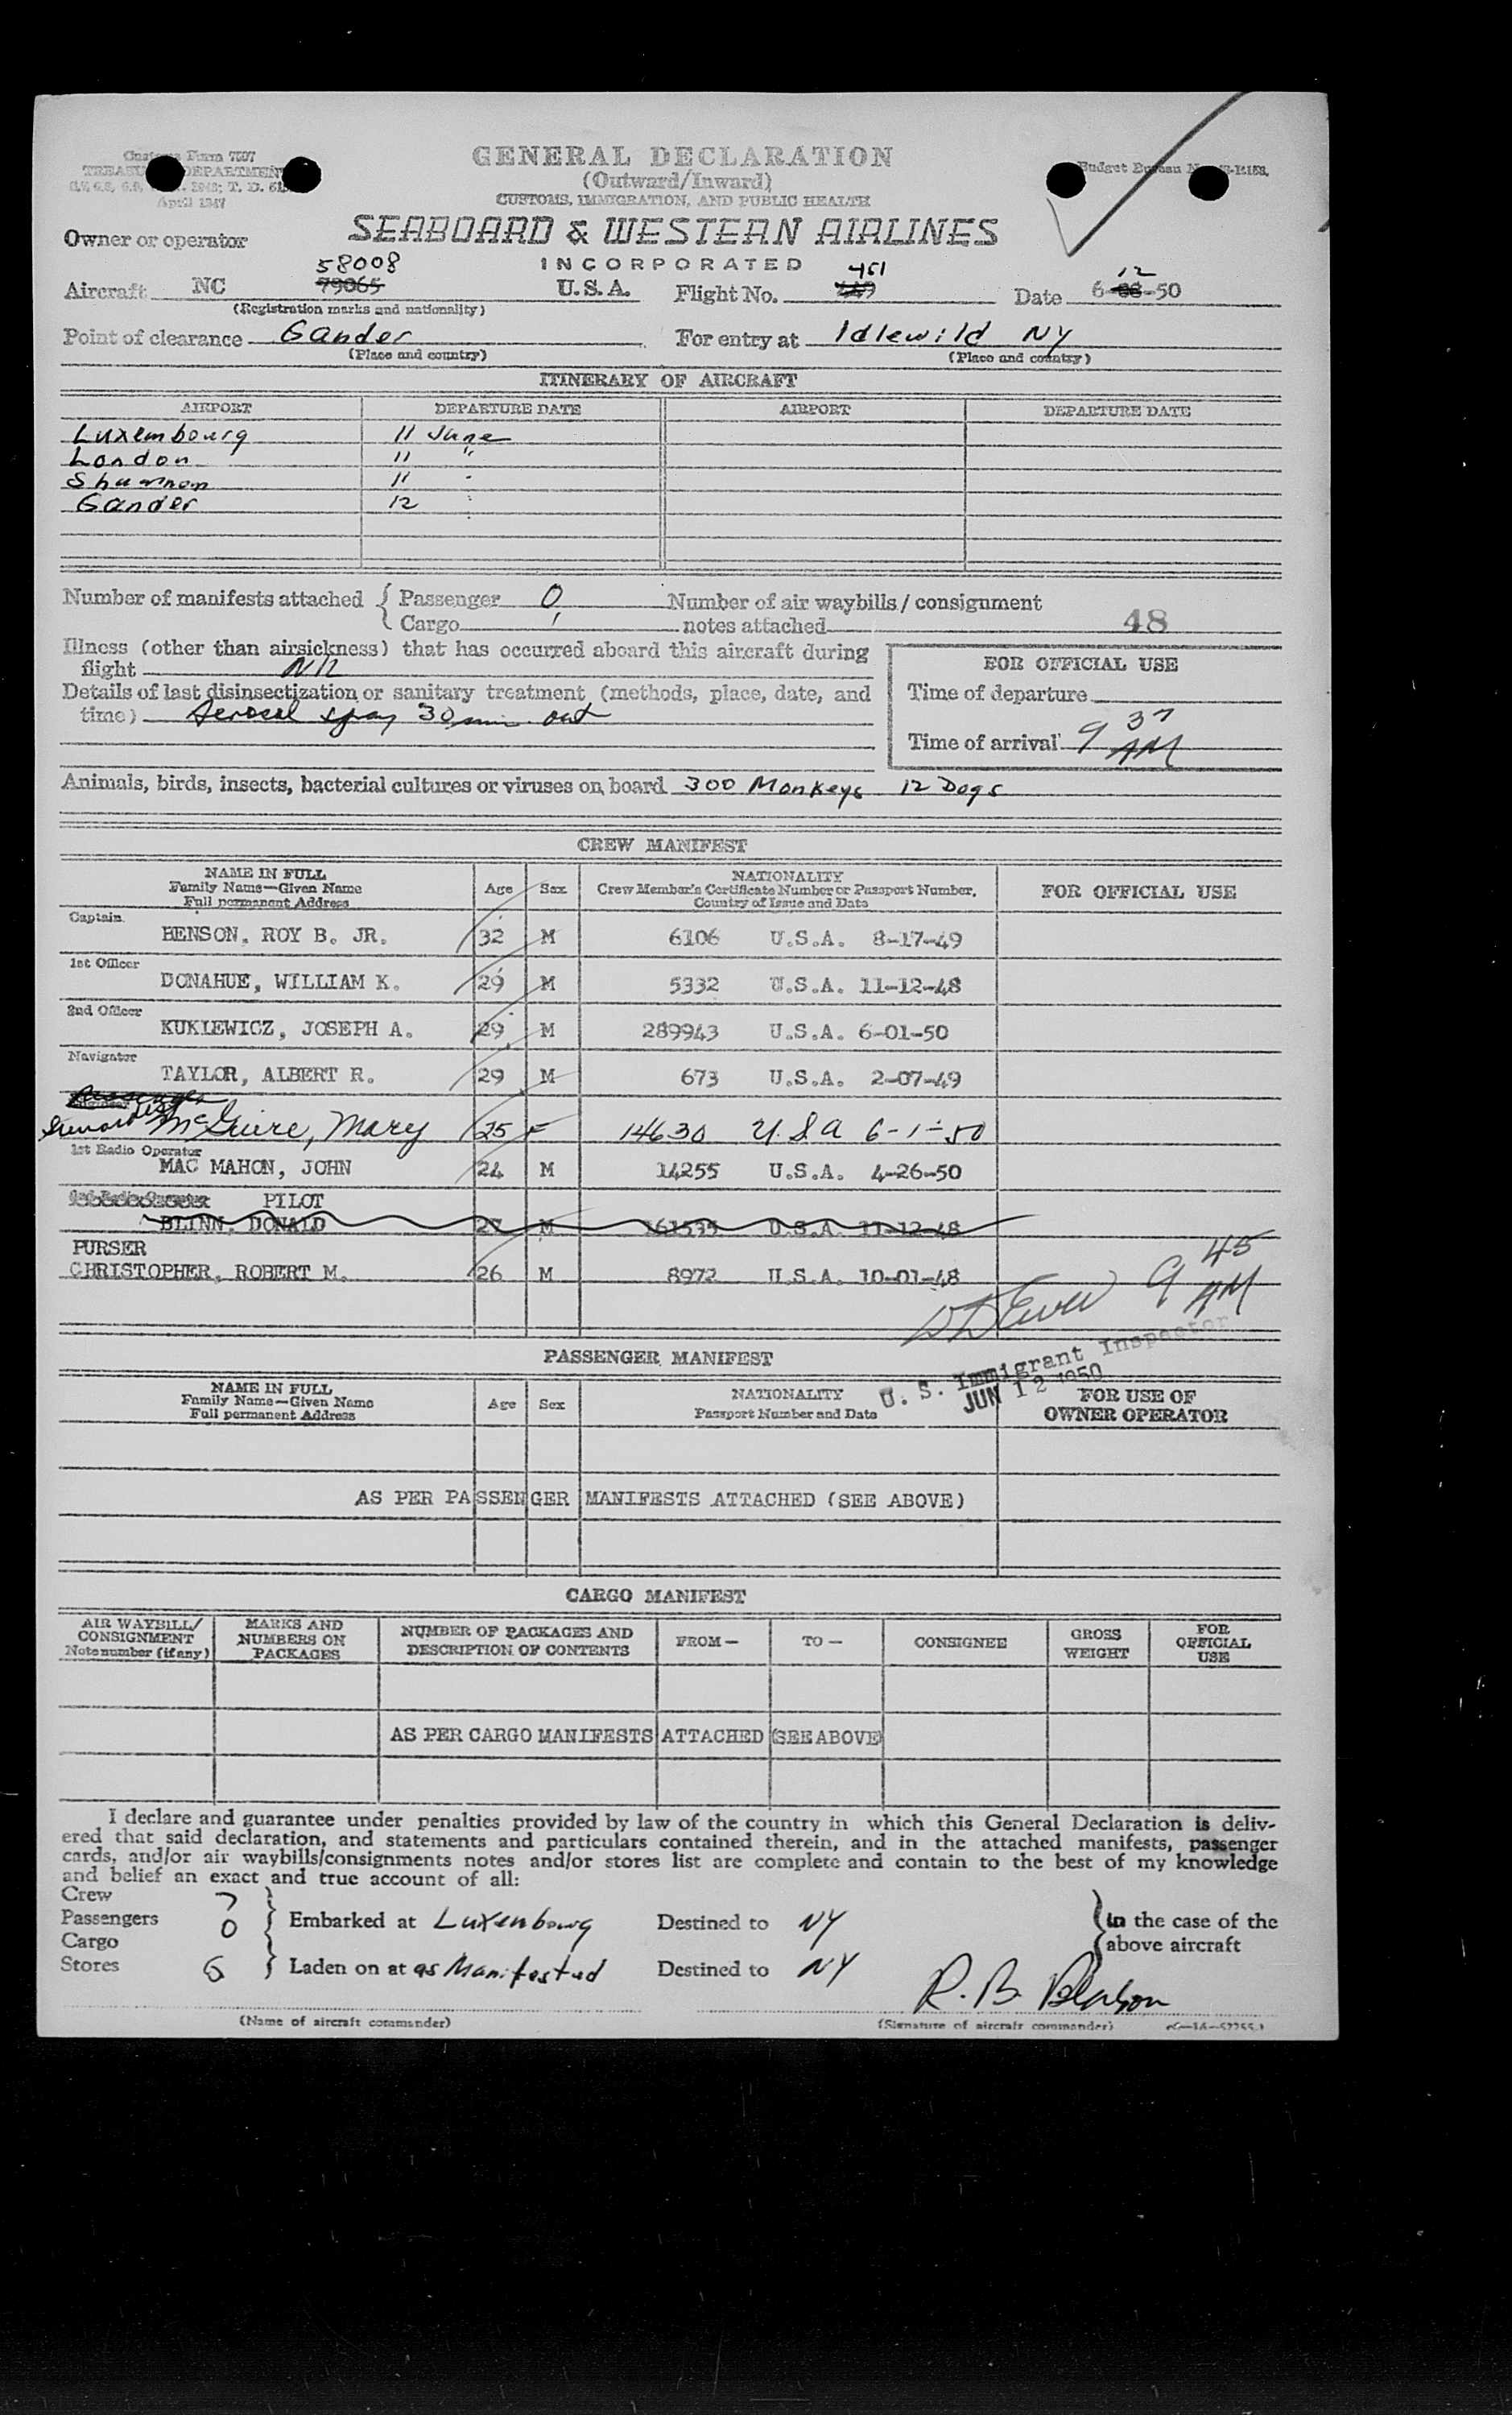 Customs Form 7507
TREASURY DEPARTMENT
April 1947
GENERAL DECLARATION
(Outward/Inward)
CUSTOMS, IMMIGRATION, AND PUBLIC HEALTH
Budget Bureau
Owner or operator SEABOARD & WESTERN AIRLINES
INCORPORATED
58008 451 12
Aircraft NC 79065 U.S.A. Flight No. Date 6-08-50
(Registration marks and nationality)
Point of clearance Gander For entry at Idlewild NY
(Place and country) (Place and country)
ITINERARY OF AIRCRAFT
AIRPORT DEPARTURE DATE AIRPORT DEPARTURE DATE
Luxembourg 11 June
London 11 "
Shannon 11 "
Gander 12 "
Number of manifests attached { Passenger 0 Number of air waybills / consignment
Cargo 1 notes attached 48
Illness (other than airsickness) that has occurred aboard this aircraft during
flight Nil
Details of last disinsectization or sanitary treatment (methods, place, date, and
time) Aerosol spray 30 min. out
FOR OFFICIAL USE
Time of departure
Time of arrival 9 37 AM
Animals, birds, insects, bacterial cultures or viruses on board 300 Monkeys 12 Dogs
CREW MANIFEST
NAME IN FULL
Family Name—Given Name
Full permanent Address
Age Sex
NATIONALITY
Crew Member's Certificate Number or Passport Number,
Country of Issue and Date
FOR OFFICIAL USE
Captain
BENSON, ROY B. JR. 32 M 6106 U.S.A. 8-17-49
1st Officer
DONAHUE, WILLIAM K. 29 M 5332 U.S.A. 11-12-48
2nd Officer
KUKIEWICZ, JOSEPH A. 29 M 289943 U.S.A. 6-01-50
Navigator
TAYLOR, ALBERT R. 29 M 673 U.S.A. 2-07-49
Passenger
Stewardess McGuire, Mary 25 F 14630 U.S.A 6-1-50
1st Radio Operator
MAC MAHON, JOHN 24 M 14255 U.S.A. 4-26-50
PILOT
BLINN, DONALD 27 M 161535 U.S.A. 11-12-48
PURSER
CHRISTOPHER, ROBERT M. 26 M 8972 U.S.A. 10-01-48
9 45 AM
U. S. Immigrant Inspector
JUN 12 1950
PASSENGER MANIFEST
NAME IN FULL
Family Name—Given Name
Full permanent Address
Age Sex
NATIONALITY
Passport Number and Date
FOR USE OF
OWNER OPERATOR
AS PER PASSENGER MANIFESTS ATTACHED (SEE ABOVE)
CARGO MANIFEST
AIR WAYBILL/
CONSIGNMENT
Note number (if any)
MARKS AND
NUMBERS ON
PACKAGES
NUMBER OF PACKAGES AND
DESCRIPTION OF CONTENTS
FROM—
TO—
CONSIGNEE
GROSS
WEIGHT
FOR
OFFICIAL
USE
AS PER CARGO MANIFESTS ATTACHED (SEE ABOVE)
I declare and guarantee under penalties provided by law of the country in which this General Declaration is deliv-
ered that said declaration, and statements and particulars contained therein, and in the attached manifests, passenger
cards, and/or air waybills/consignments notes and/or stores list are complete and contain to the best of my knowledge
and belief an exact and true account of all:
Crew 7
Passengers 0 } Embarked at Luxenbourg Destined to NY } In the case of the
Cargo above aircraft
Stores } Laden on at as Manifested Destined to NY
R. B. Benson
(Name of aircraft commander) (Signature of aircraft commander)